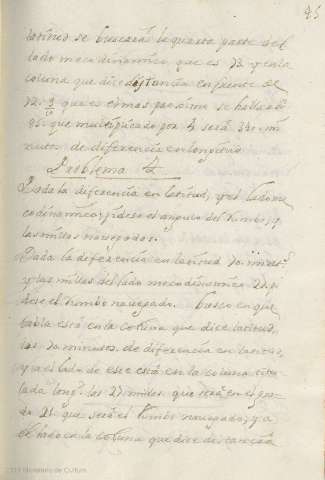 85
latitud se buscará la quarta parte del
lado mecodinamico, que es 73 y en la
coluna que dice distancia enfrente de
72. 9/10 que es el mas proximo se hallará
85. que multiplicado por 4 será 340 mi
nutos de diferencia en longitud
Problema 4
Dada la diferencia en latitud, y el lado me
codinamico, pidese el angulo del rumbo, y
las millas navegadas.
Dada la diferencia en latitud 70 minutos
y las millas del lado mecodinamico 27. pi
dese el rumbo navegado. Busco en que
tabla está en la coluna que dice latitud,
los 70 minutos de diferencia en latitud,
y a el lado de ese está en la coluna
lada long. las 27 millas, que será en el gra
do 21 que será el rumbo navegado, y a
el lado en la coluna que dice distancia
Ministerio de Cultura